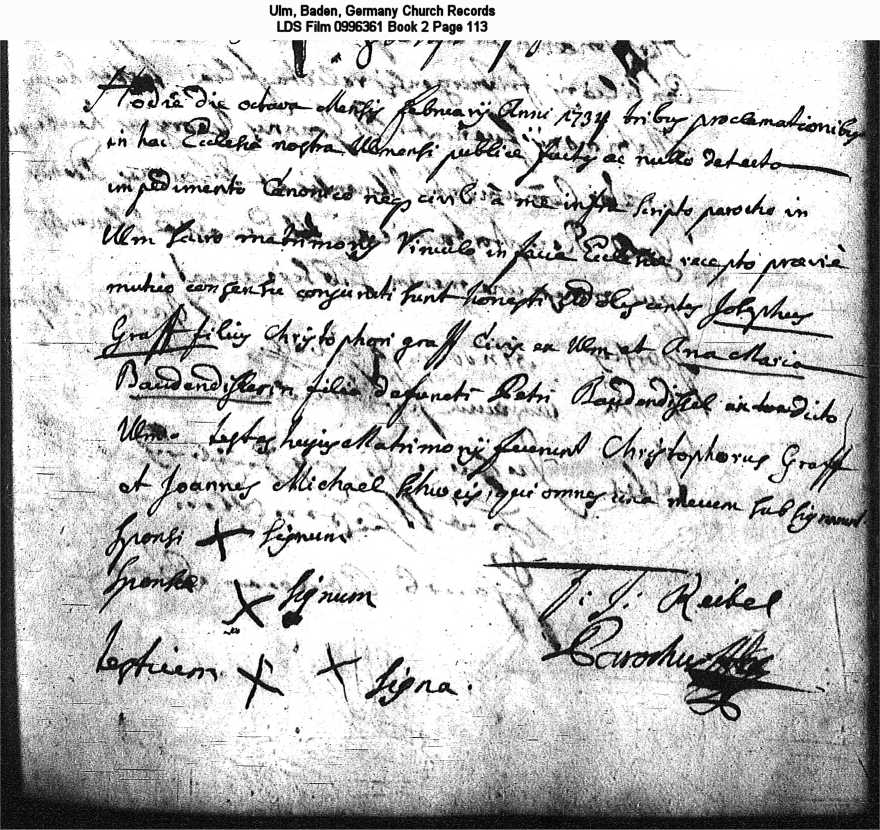 Ulm, Baden, Germany Church Records
LDS Film 0996361 Book 2 Page 113
Hodie die octava Mensis februarij Anni 1734 tribus proclamationibus
in hac Ecclesia nostra Ulmensi publice factis ac nullo detecto
impedimento Canonico neqs civili à me infra scripto parocho in
Ulm sacro matrimonij Vinculo in facie Ecclesiae recepto praeviè
mutuo consensu conjuncti sunt honesti Adolescentes Josephus
Graff filius Christophori graff Civis ex Ulm et Ana Maria
Baudendistlerin filia defuncti Petri Baudendistel ex
Ulm testes hujus Matrimonij fuerunt Christophorus Graff
et Joannes Michael Schweis, qui omnes una mecum subsignarunt
sponsi X signum
sponsae X signum
J: J: Reibel
Parochus
testium X X signa.